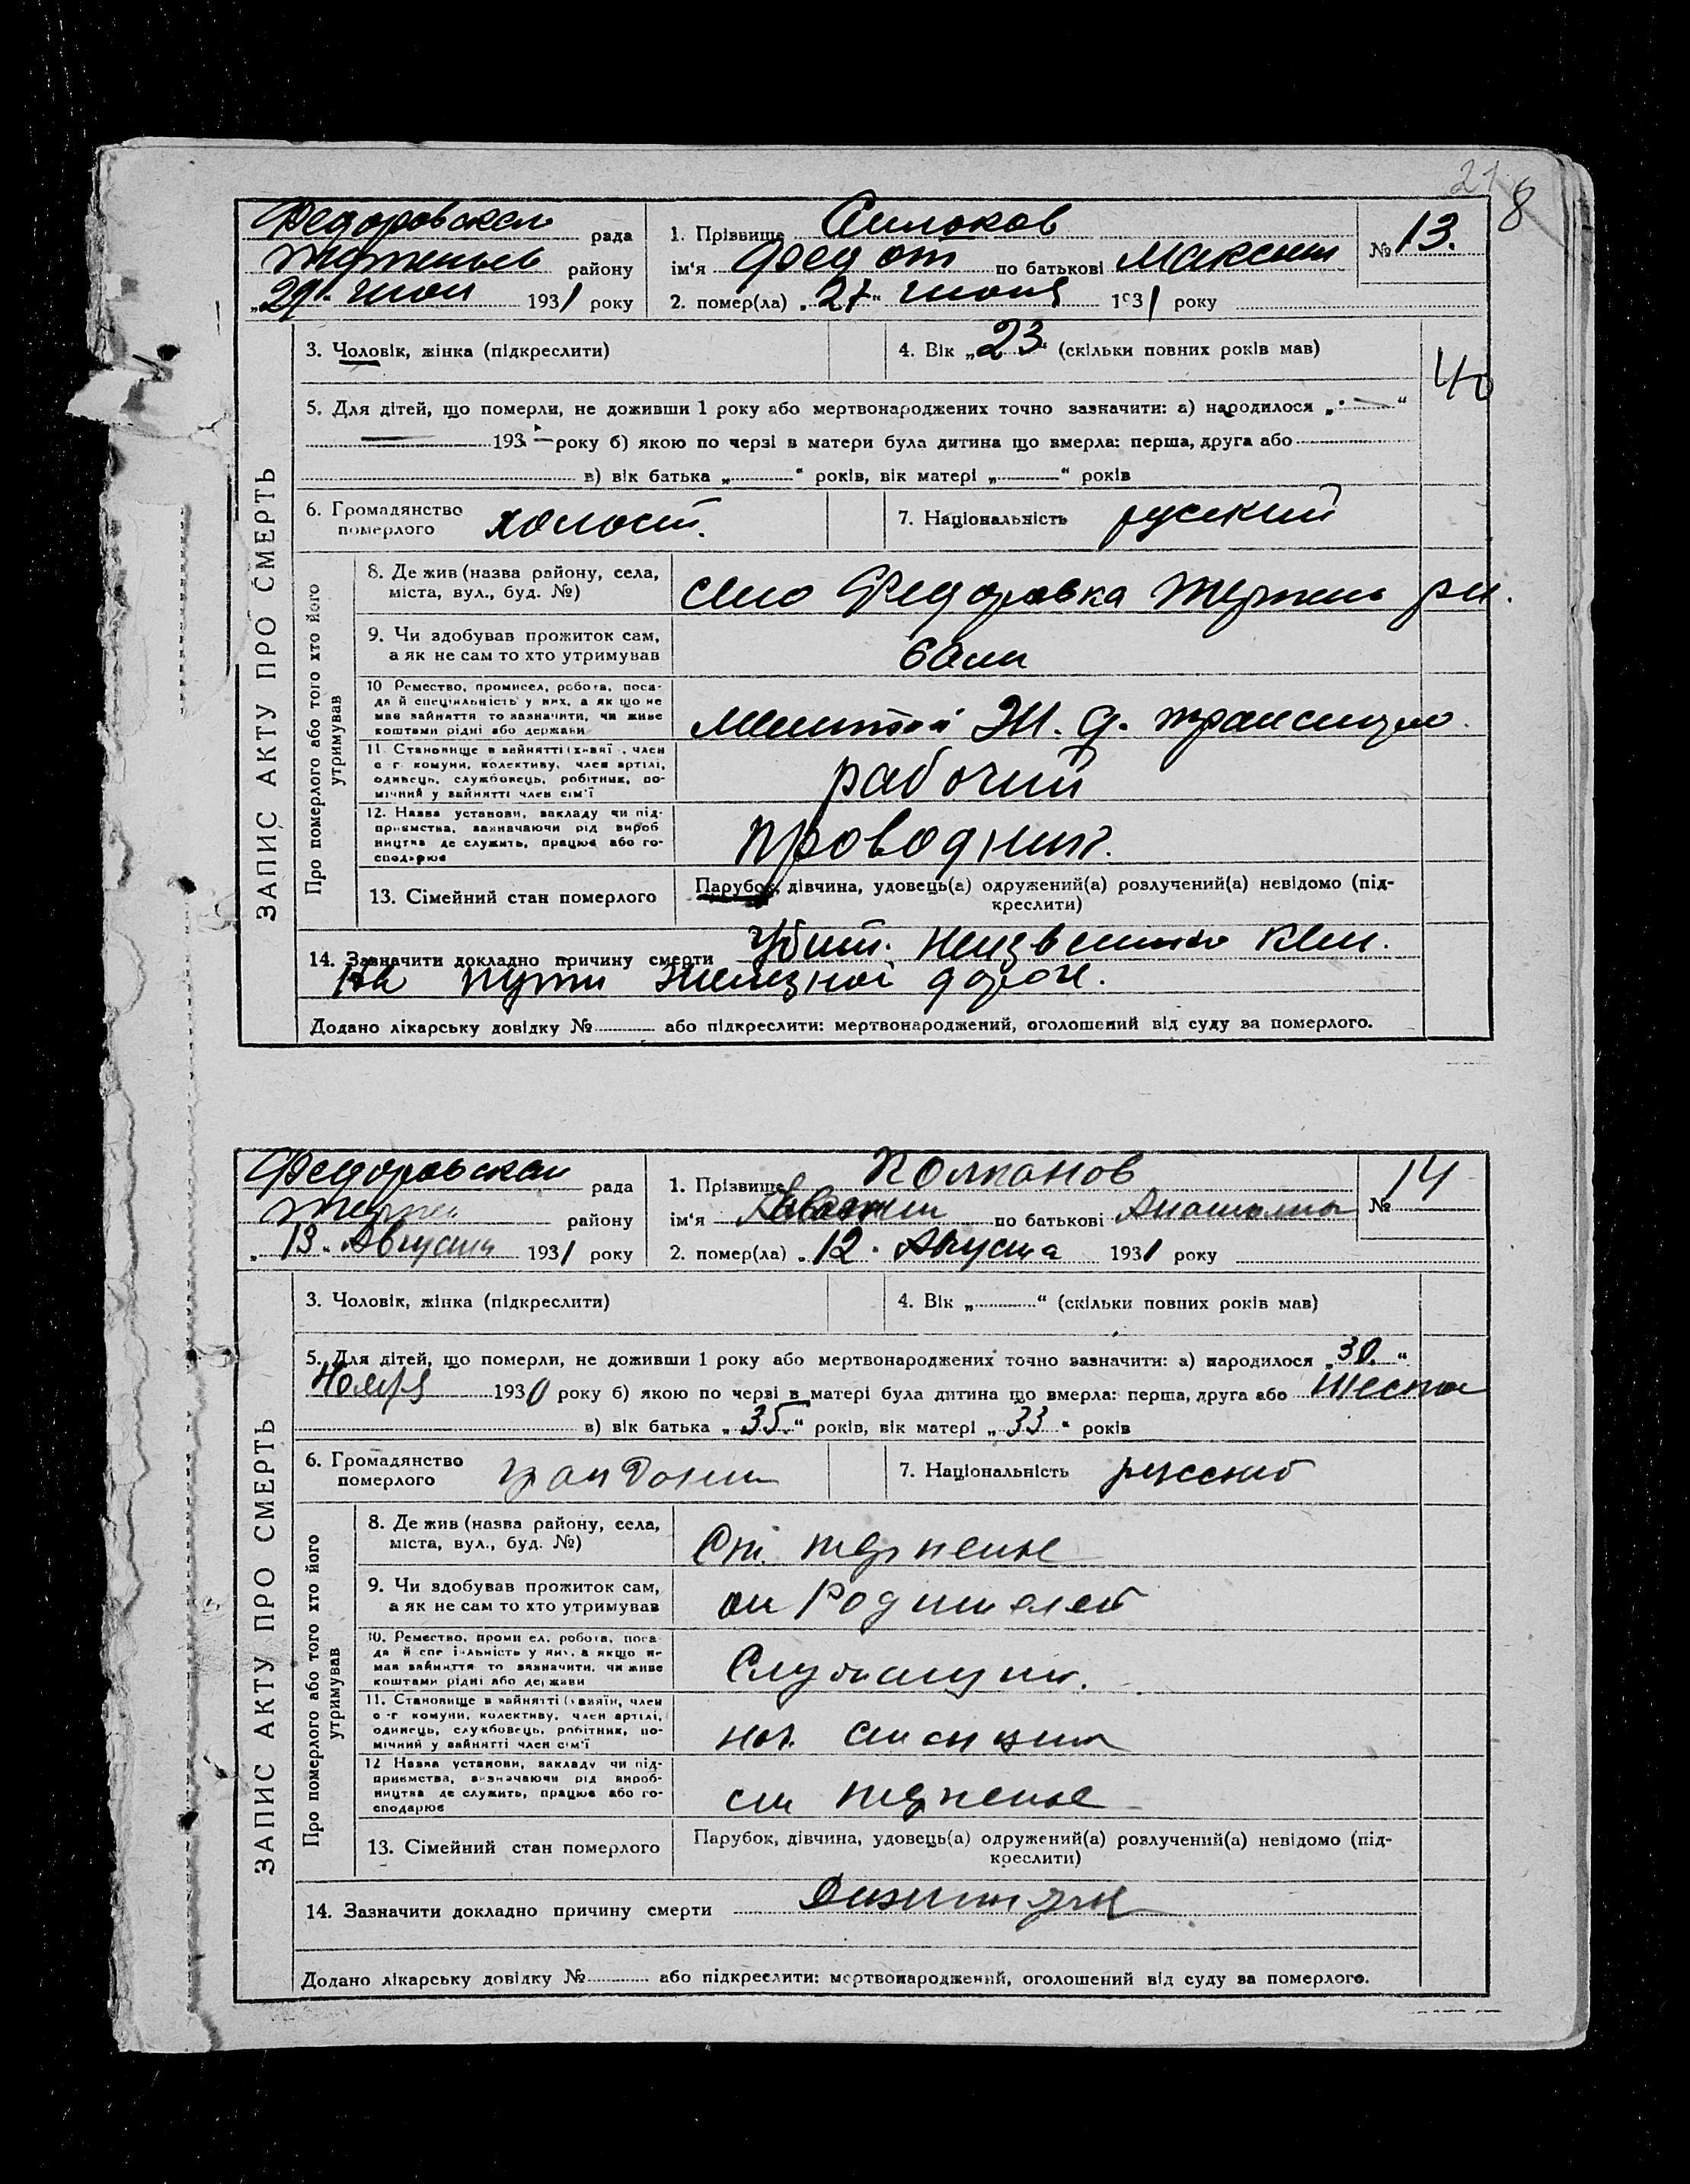 21 8
Федоровская рада
району
"29" июн 1931 року
1. Прізвище
ім'я Федот по батькові Максим
2. помер(ла) "27" июня 1931 року
№ 13.
ЗАПИС АКТУ ПРО СМЕРТЬ
3. Чоловік, жінка (підкреслити)
4. Вік „23“ (скільки повних років мав)
40
5. Для дітей, що померли, не доживши 1 року або мертвонароджених точно зазначити: а) народилося „—“
— 193 — року б) якою по черзі в матери була дитина що вмерла: перша, друга або
в) вік батька „ “ років, вік матері „ “ років
6. Громадянство померлого холост.
7. Національність русский
Про померлого або того хто його утримував
8. Де жив (назва району, села, міста, вул., буд. №) село Федоровка рн.
9. Чи здобував прожиток сам, а як не сам то хто утримував сам
10 Ремество, промисел, робота, посада й спеціяльність у них, а як що не має зайняття то зазначити, чи живе коштами рідні або держави Ж. д.
11. Становище в зайнятті (хазяї, член с.-г. комуни, колективу, член артілі, одинець, службовець, робітник, помічний у зайнятті член сім'ї рабочий
12. Назва установи, закладу чи підприємства, зазначаючи рід виробництва де служить, працює або господарює проводник.
13. Сімейний стан померлого Парубок, дівчина, удовець(а) одружений(а) розлучений(а) невідомо (підкреслити)
14. Зазначити докладно причину смерти Убит. неизвестно кем.
На пути железной дороге.
Додано лікарську довідку № або підкреслити: мертвонароджений, оголошений від суду за померлого.
Федоровская рада
району
"13" Августа 1931 року
1. Прізвище Колпанов
ім'я по батькові
2. помер(ла) "12" Августа 1931 року
№ 14
ЗАПИС АКТУ ПРО СМЕРТЬ
3. Чоловік, жінка (підкреслити)
4. Вік „ “ (скільки повних років мав)
5. Для дітей, що померли, не доживши 1 року або мертвонароджених точно зазначити: а) народилося „30.“
Ноября 1930 року б) якою по черзі в матері була дитина що вмерла: перша, друга або
в) вік батька „35“ років, вік матері „33“ років
6. Громадянство померлого
7. Національність русский
Про померлого або того хто його утримував
8. Де жив (назва району, села, міста, вул., буд. №) Ст.
9. Чи здобував прожиток сам, а як не сам то хто утримував от Родителей
10. Ремество, промисел, робота, посада й спеціяльність у них, а якщо не має зайняття то зазначити, чи живе коштами рідні або держави
11. Становище в зайнятті (хазяїн, член с.-г. комуни, колективу, член артілі, одинець, службовець, робітник, помічний у зайнятті член сім'ї нач. станции
12 Назва установи, закладу чи підприємства, зазначаючи рід виробництва де служить, працює або господарює ст
13. Сімейний стан померлого Парубок, дівчина, удовець(а) одружений(а) розлучений(а) невідомо (підкреслити)
14. Зазначити докладно причину смерти
Додано лікарську довідку № або підкреслити: мертвонароджений, оголошений від суду за померлого.